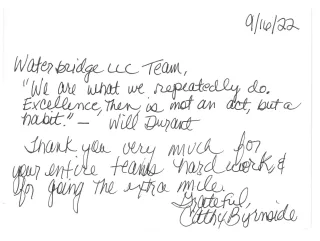 9/16/22
Waterbridge LLC Team,
"We are what we repeatedly do.
Excellence, then, is not an act, but a
habit." — Will Durant
Thank you very much for
your entire teams hard work, &
for going the extra mile.
Grateful,
Cathy Byrnside